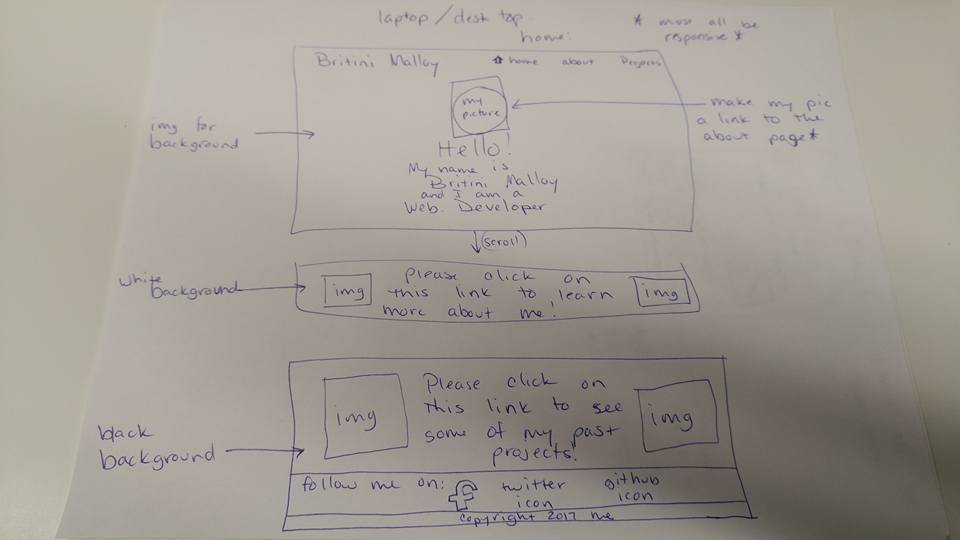 laptop/desktop
home:
* must all be
responsive *
Britini Malloy
home about Projects
my
picture
make my pic
a link to the
about page*
img for
background
Hello!
My name is
Britini Malloy
and I am a
Web. Developer
(scroll)
white
background
img
Please click on
this link to learn
more about me!
img
black
background
img
Please click on
this link to see
some of my past
projects!
img
follow me on: f twitter icon github icon
copyright 2017 me